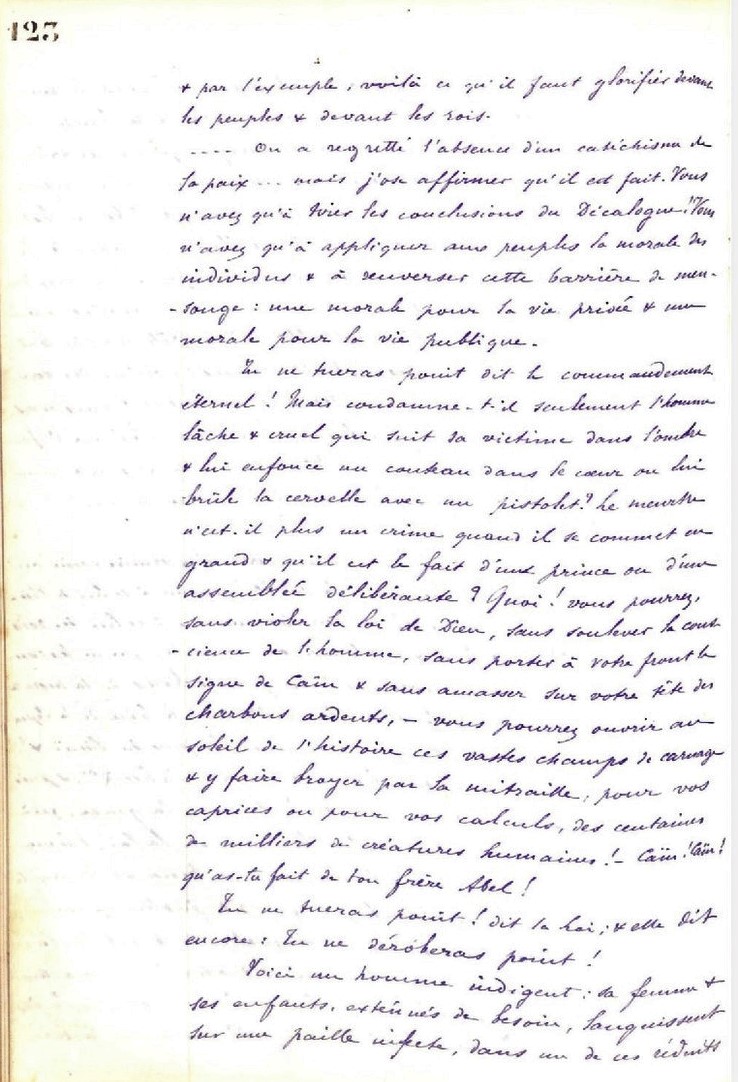 123
& par l'exemple, voilà ce qu'il faut glorifier devant
les peuples & devant les rois.
.... On a regretté l'absence d'un catéchisme de
la paix... mais j'ose affirmer qu'il est fait. Vous
n'avez qu'à tirer les conclusions du Décalogue! Vous
n'avez qu'à appliquer aux peuples la morale des
individus & à renverser cette barrière de men-
-songe : une morale pour la vie privée & une
morale pour la vie publique.
Tu ne tueras point dit le commandement
éternel ! Mais condamne-t-il seulement l'homme
lâche & cruel qui suit sa victime dans l'ombre
& lui enfonce un couteau dans le cœur ou lui
brûle la cervelle avec un pistolet? Le meurtre
n'est-il plus un crime quand il se commet en
grand & qu'il est le fait d'un prince ou d'une
assemblée délibérante ? Quoi ! vous pourrez,
sans violer la loi de Dieu, sans soulever la cons-
-cience de l'homme, sans porter à votre front le
signe de Caïn & sans amasser sur votre tête des
charbons ardents, - vous pourrez ouvrir au
soleil de l'histoire ces vastes champs de carnage
& y faire broyer par la mitraille, pour vos
caprices ou pour vos calculs, des centaines
de milliers de créatures humaines ! - Caïn ! Caïn !
qu'as-tu fait de ton frère Abel !
Tu ne tueras point ! dit la loi ; & elle dit
encore : Tu ne déroberas point !
Voici un homme indigent : sa femme &
ses enfants, exténués de besoin, languissent
sur une paille infecte, dans un de ces réduits